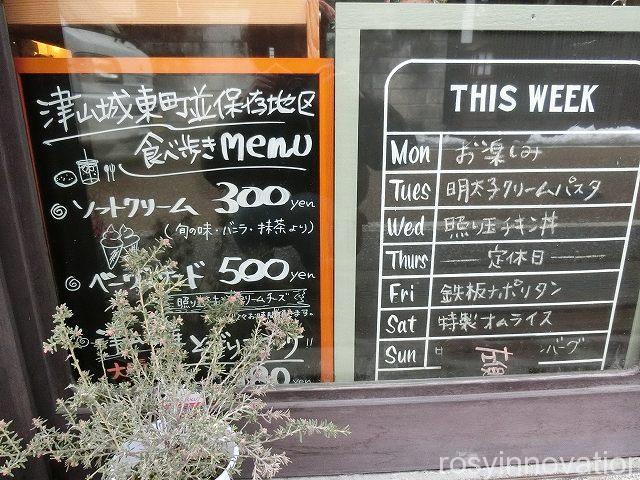 津山城東町並保存地区
食べ歩き menu
ソフトクリーム 300 yen
(旬の味・バニラ・抹茶 より)
500 yen
クリームチーズ
THIS WEEK
Mon お楽しみ
Tues 明太子クリームパスタ
Wed 照り玉チキン丼
Thurs 定休日
Fri 鉄板ナポリタン
Sat 特製オムライス
Sun バーグ
rosyinnovation